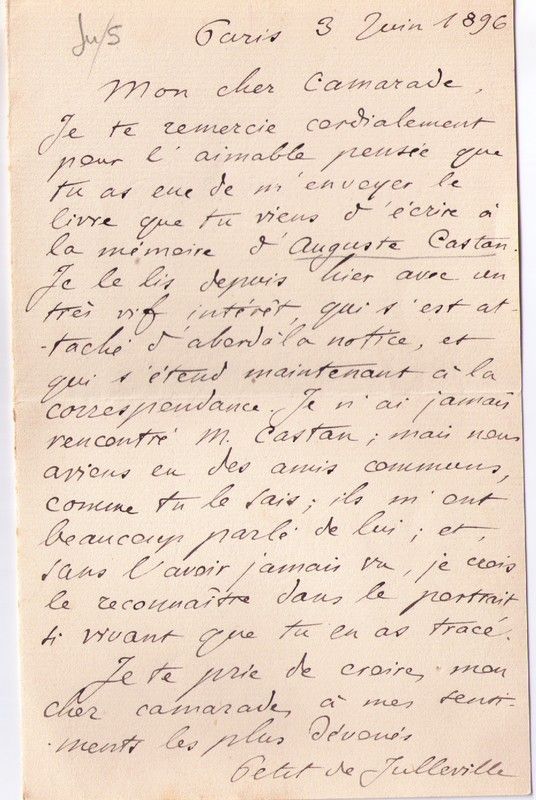 Ju/5
Paris 3 Juin 1896
Mon cher Camarade,
Je te remercie cordialement
pour l'aimable pensée que
tu as eue de m'envoyer le
livre que tu viens d'écrire à
la mémoire d'Auguste Castan.
Je le lis depuis hier avec un
très vif intérêt, qui s'est at-
-taché d'abord à la notice, et
qui s'étend maintenant à la
correspondance. Je n'ai jamais
rencontré M. Castan ; mais nous
avions eu des amis communs,
comme tu le sais ; ils m'ont
beaucoup parlé de lui ; et,
sans l'avoir jamais vu, je crois
le reconnaître dans le portrait
si vivant que tu en as tracé.
Je te prie de croire, mon
cher camarade, à mes senti-
-ments les plus dévoués
Petit de Julleville